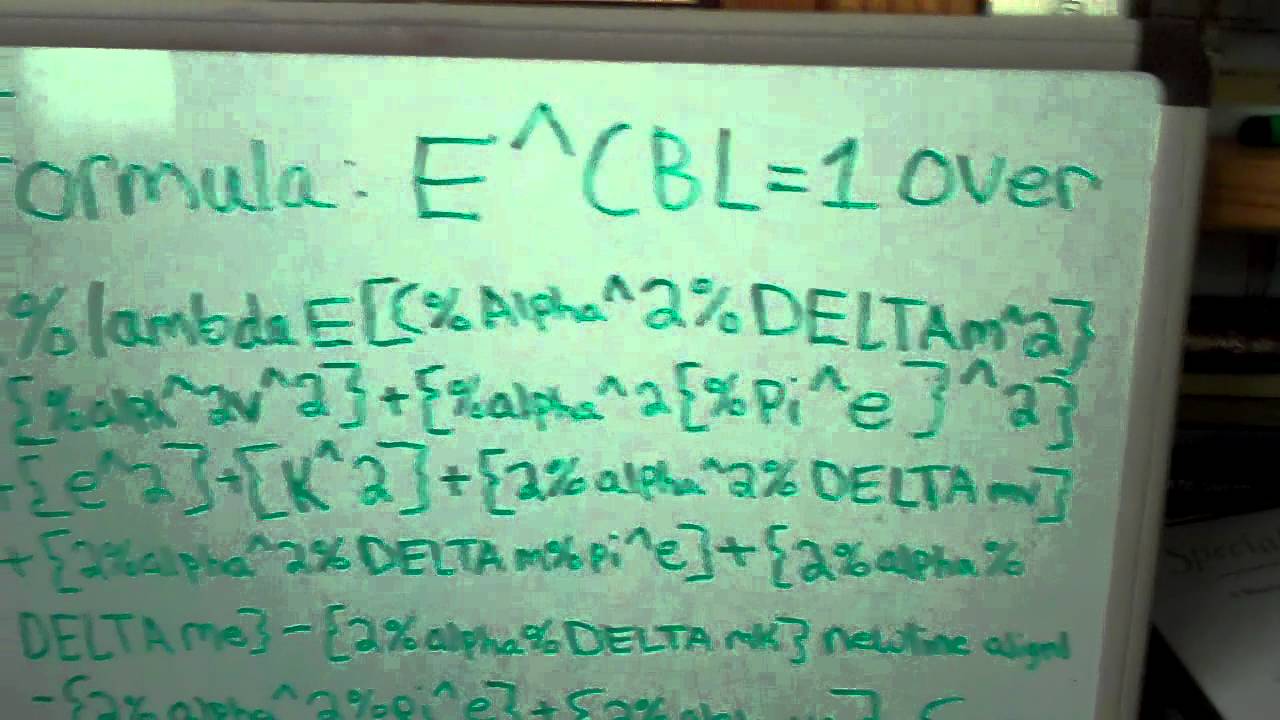 ormula: E^CBL=1 over
%lambda E[(%Alpha^2%DELTAm^2}
{%alph^2v^2}+{%alpha^2{%pi^e}^2}
+{e^2}+{K^2}+{2%alpha^2%DELTAmv}
+{2%alpha^2%DELTAm%pi^e}+{2%alpha%
DELTAme}-{2%alpha%DELTAmK} newline alignl
-{2%alpha^2%pi^e}+{2%alpha
Special